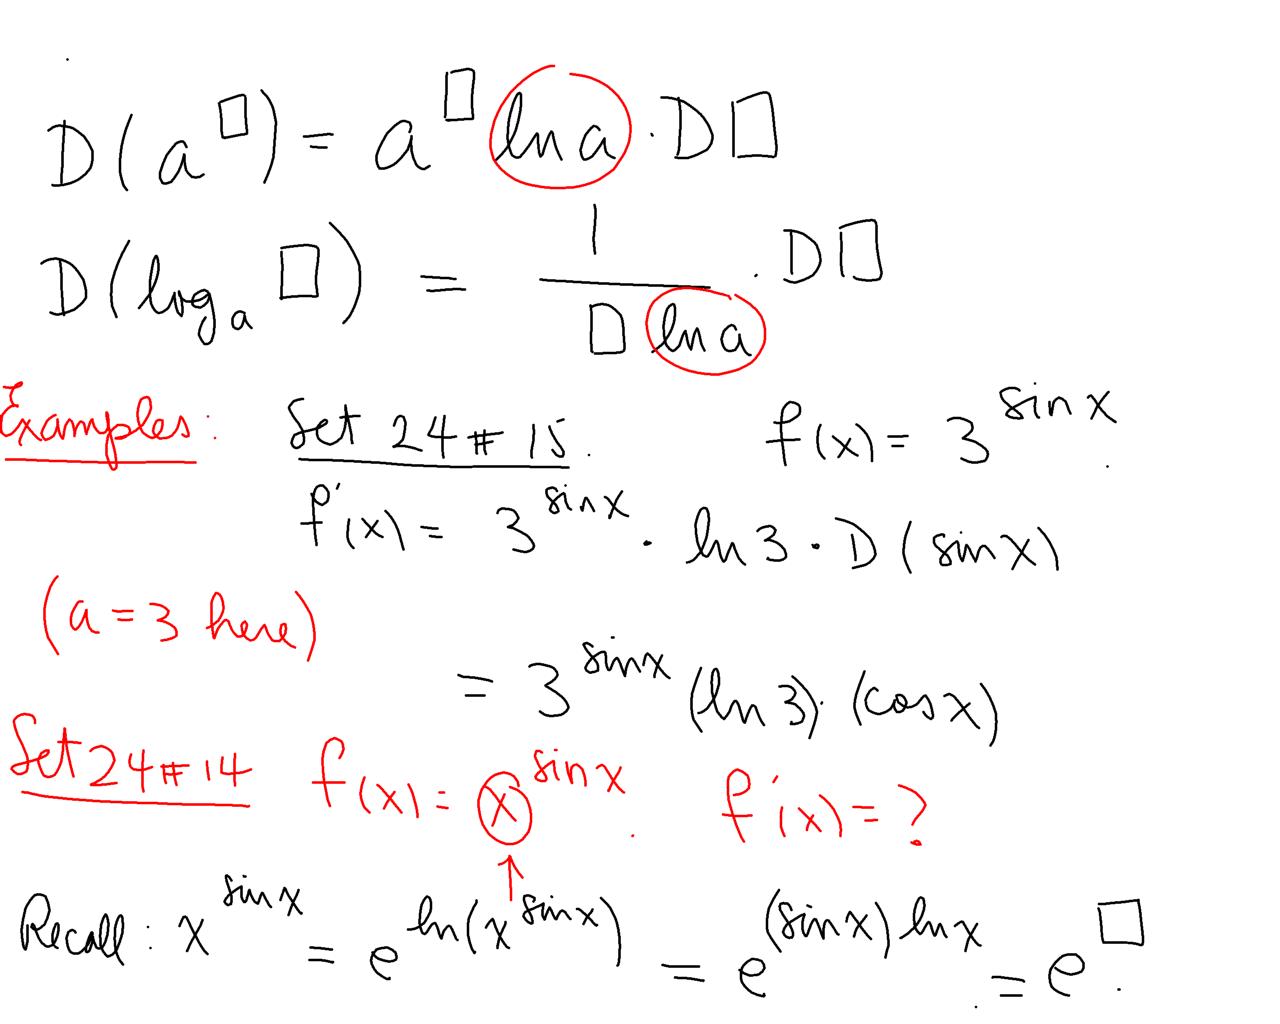 D(a^□) = a^□ ln a · D□
D(log_a □) = 1/(□ ln a) · D□
Examples: Set 24 # 15. f(x) = 3^sin x.
f'(x) = 3^sin x · ln 3 · D(sin x)
(a = 3 here)
= 3^sin x (ln 3) · (cos x)
Set 24 # 14 f(x) = x^sin x. f'(x) = ?
↑
Recall: x^sin x = e^ln(x^sin x) = e^(sin x) ln x = e^□.